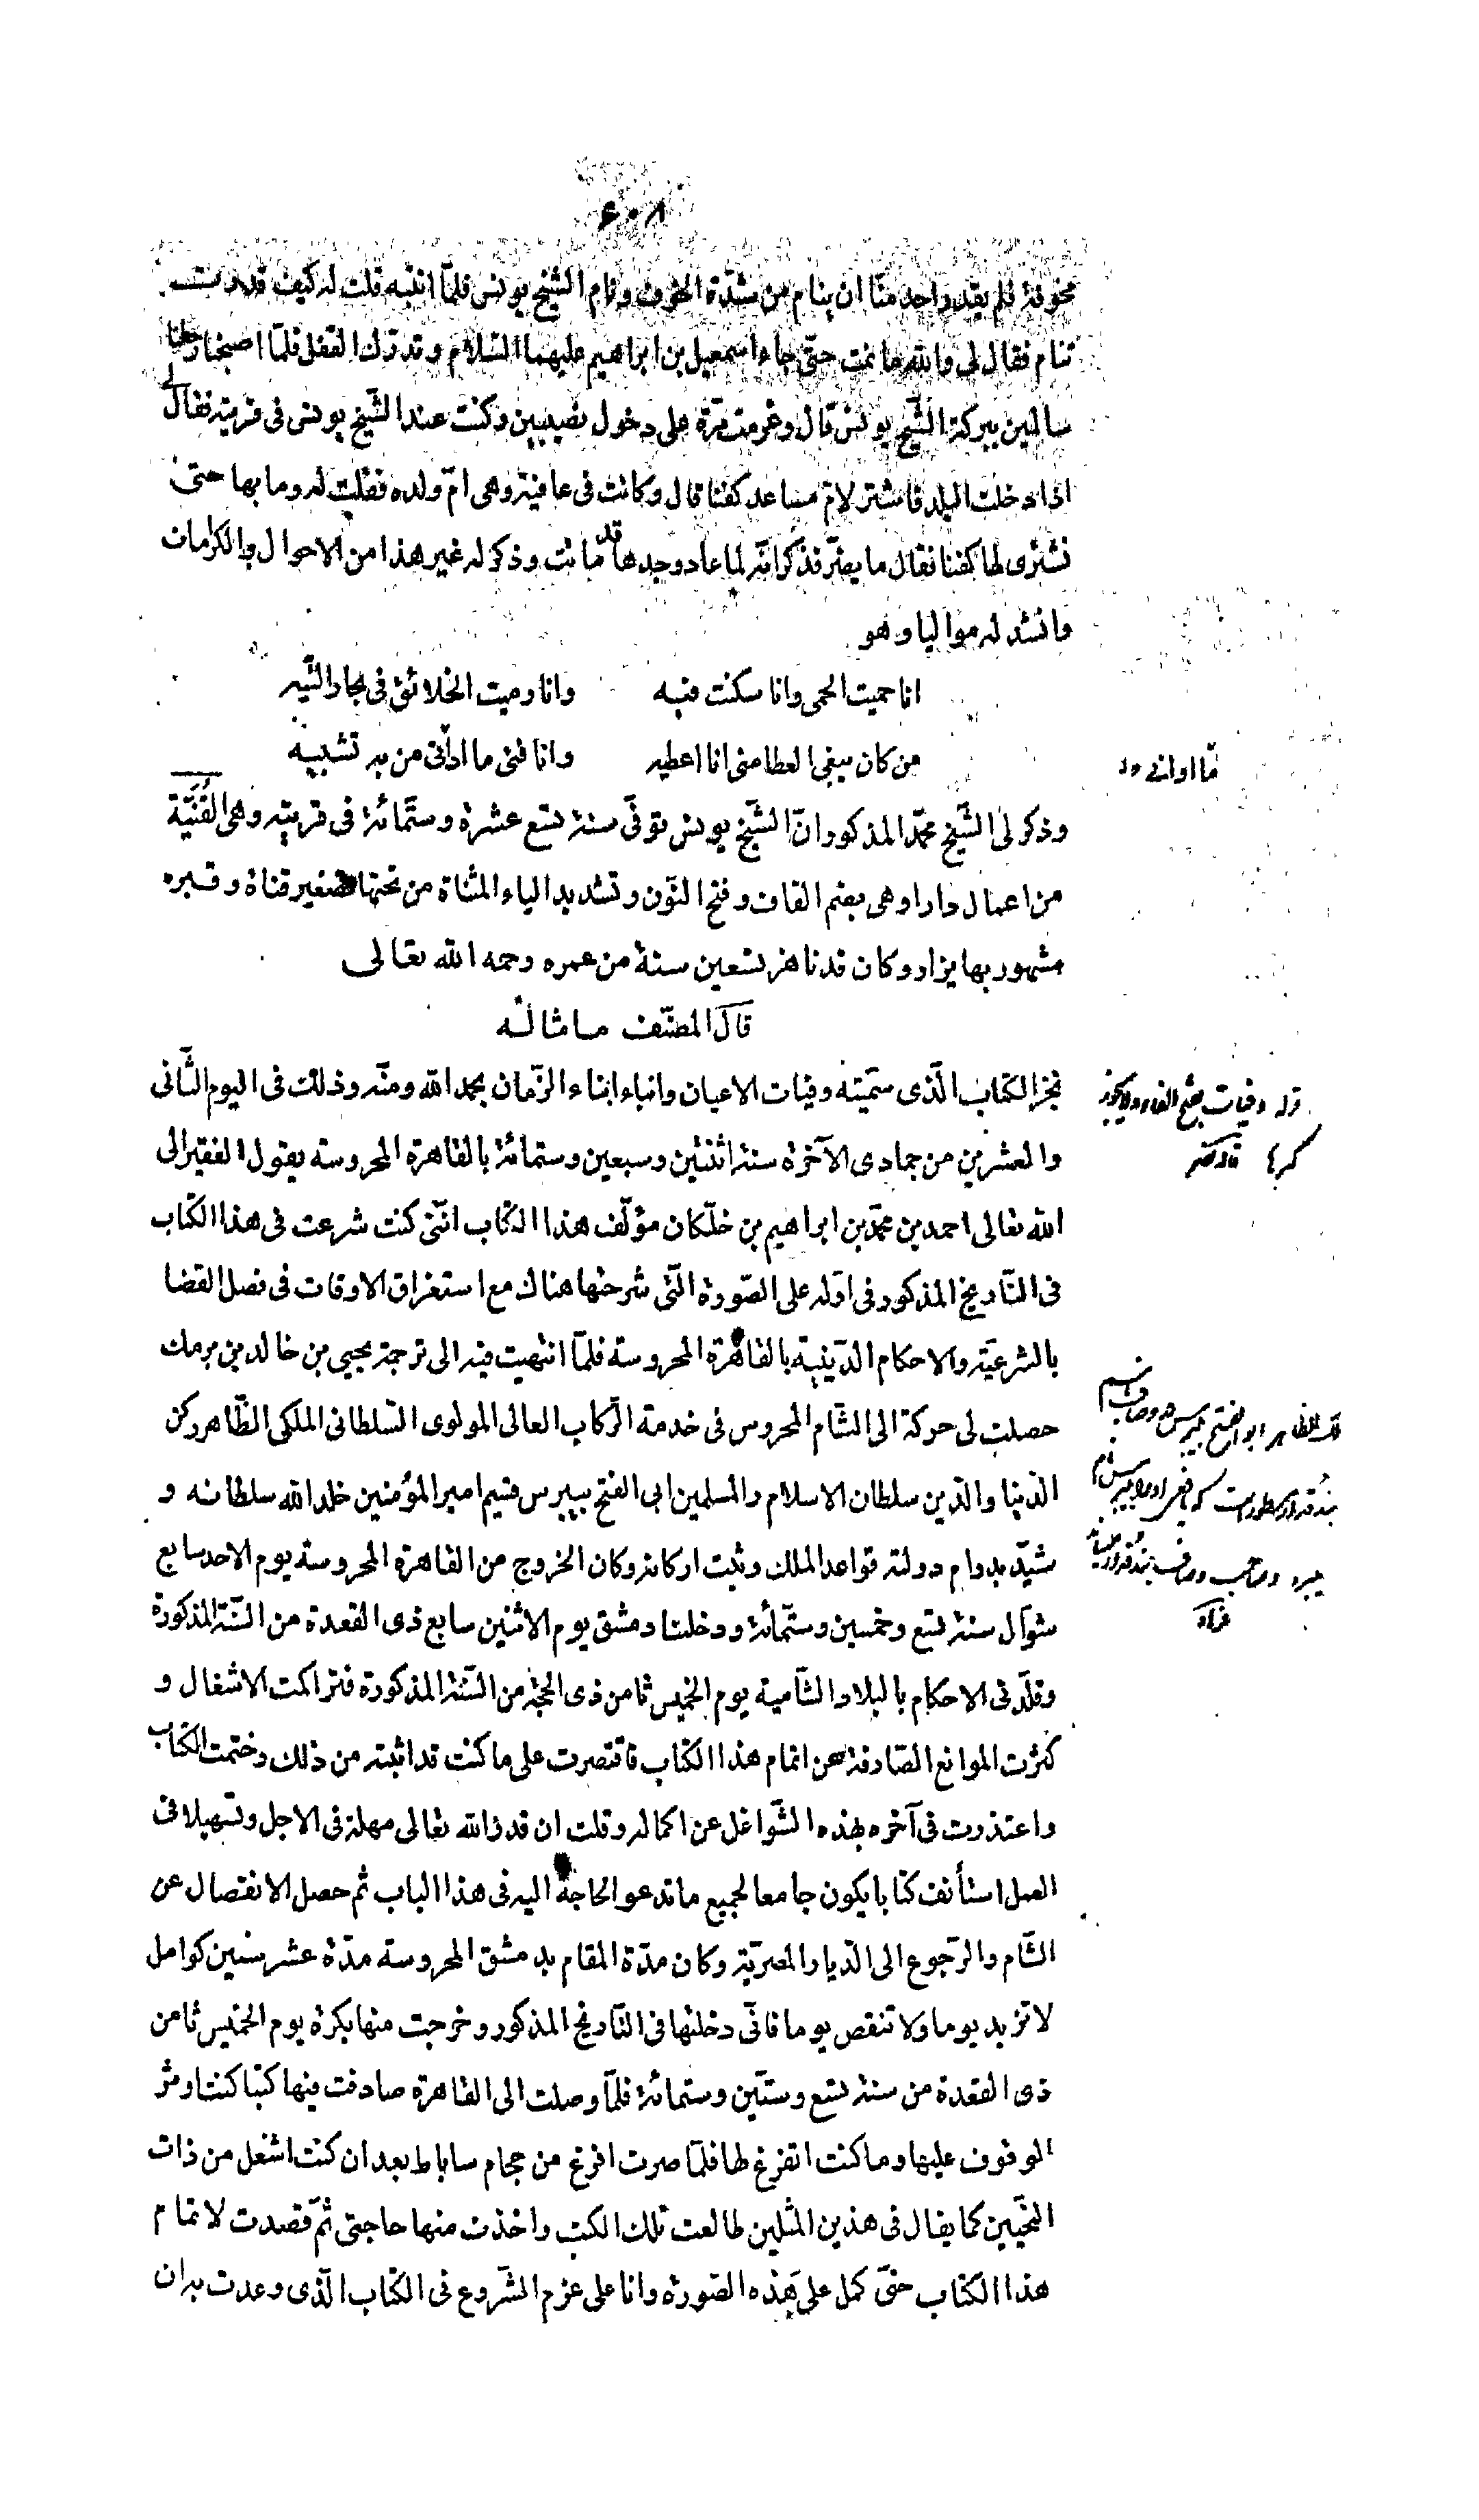 ۶۰۸
مخوفة فلم يقدر احد منّا ان ينام من شدّة الخوف ونام الشيخ يونس فلمّا انتبه قلت له كيف قدرت
تنام فقال لى والله ما نمت حتّى جاء اسمعيل بن ابراهيم عليهما السّلام وتدرّك القفل فلمّا اصبحنا رحلنا
سالمين ببركة الشّيخ يونس قال وعزمت مرّة على دخول نصيبين وكنت عند الشّيخ يونس فى قريته فقال لى
اذا دخلت البلد فاشتر لامّ مساعد كفنا قال وكانت فى عافية وهى امّ ولده فقلت له وما بها حتى
نشترى لها كفنا فقال ما يضرّ فذكر انّه لما عاد وجدها قد ماتت وذكر له غير هذا من الاحوال والكرامات
وانشد له مواليا وهو
انا حميت الحمى وانا سكنت فيه وانا رميت الخلائق فى بحار التّيه
من كان يبغى العطا منى انا اعطيه وانا فتى ما ادانى من به تشبيه
وذكر لى الشّيخ محمّد المذكور انّ الشّيخ يونس توفّى سنة تسع عشرة وستّمائة فى قريته وهى القُنَيَّة
من اعمال دارا وهى بضم القاف وفتح النّون وتشديد الياء المثناة من تحتها تصغير قناة وقبره
مشهور بها يزار وكان قد ناهز تسعين سنة من عمره رحمه الله تعالى
قال المصنّف ما مثاله
نجز الكتاب الّذى سمّيته وفيات الاعيان وانباء ابناء الزّمان بحمد الله ومنّه وذلك فى اليوم الثّانى
والعشرين من جمادى الآخرة سنة اثنتين وسبعين وستمائة بالقاهرة المحروسة يقول الفقير الى
الله تعالى احمد بن محمّد بن ابراهيم بن خلّكان مؤلّف هذا الكتاب انّنى كنت شرعت فى هذا الكتاب
فى التّاريخ المذكور فى اوّله على الصّورة الّتى شرحتها هناك مع استغراق الاوقات فى فصل القضايا
بالشرعيّة والاحكام الدّينية بالقاهرة المحروسة فلمّا انتهيت فيه الى ترجمة يحيى بن خالد بن برمك
حصلت لى حركة الى الشّام المحروس فى خدمة الرّكاب العالى المولوى السّلطانى الملكى الظّاهر ركن
الدّنيا والدّين سلطان الاسلام والمسلمين ابى الفتح بيبرس قسيم امير المؤمنين خلد الله سلطانه و
شيّد بدوام دولته قواعد الملك وثبت اركانه وكان الخروج من القاهرة المحروسة يوم الاحد سابع
شوّال سنة تسع وخمسين وستّمائة ودخلنا دمشق يوم الاثنين سابع ذى القعدة من السّنة المذكورة
وقلّدنى الاحكام بالبلاد الشّامية يوم الخميس ثامن ذى الحجّة من السّنة المذكورة فتراكمت الاشغال و
كثرت الموانع الصّادفة عن اتمام هذا الكتاب فاقتصرت على ما كنت قد اثبته من ذلك وختمت الكتاب
واعتذرت فى آخره بهذه الشّواغل عن اكماله وقلت ان قدر الله تعالى مهلة فى الاجل وتسهيلا فى
العمل استأنف كتابا يكون جامعا لجميع ما تدعو الحاجة اليه فى هذا الباب ثم حصل الانفصال عن
الشّام والرّجوع الى الدّيار المصريّة وكان مدّة المقام بدمشق المحروسة مدّة عشر سنين كوامل
لا تزيد يوما ولا تنقص يوما فانّى دخلتها فى التّاريخ المذكور وخرجت منها بكرة يوم الخميس ثامن
ذى القعدة من سنة تسع وستّين وستمائة فلمّا وصلت الى القاهرة صادفت فيها كتبا كنت اوثر
الوقوف عليها وما كنت اتفرغ لها فلمّا صرت افرغ من حجام ساباط بعد ان كنت اشغل من ذات
النّحيين كما يقال فى هذين المثلين طالعت تلك الكتب واخذت منها حاجتى ثمّ قصدت لاتمام
هذا الكتاب حتّى كمل على هذه الصّورة وانا على عزم الشّروع فى الكتاب الّذى وعدت به ان
قوله وفيات بفتح الفاء ولا يجوز
كسرها